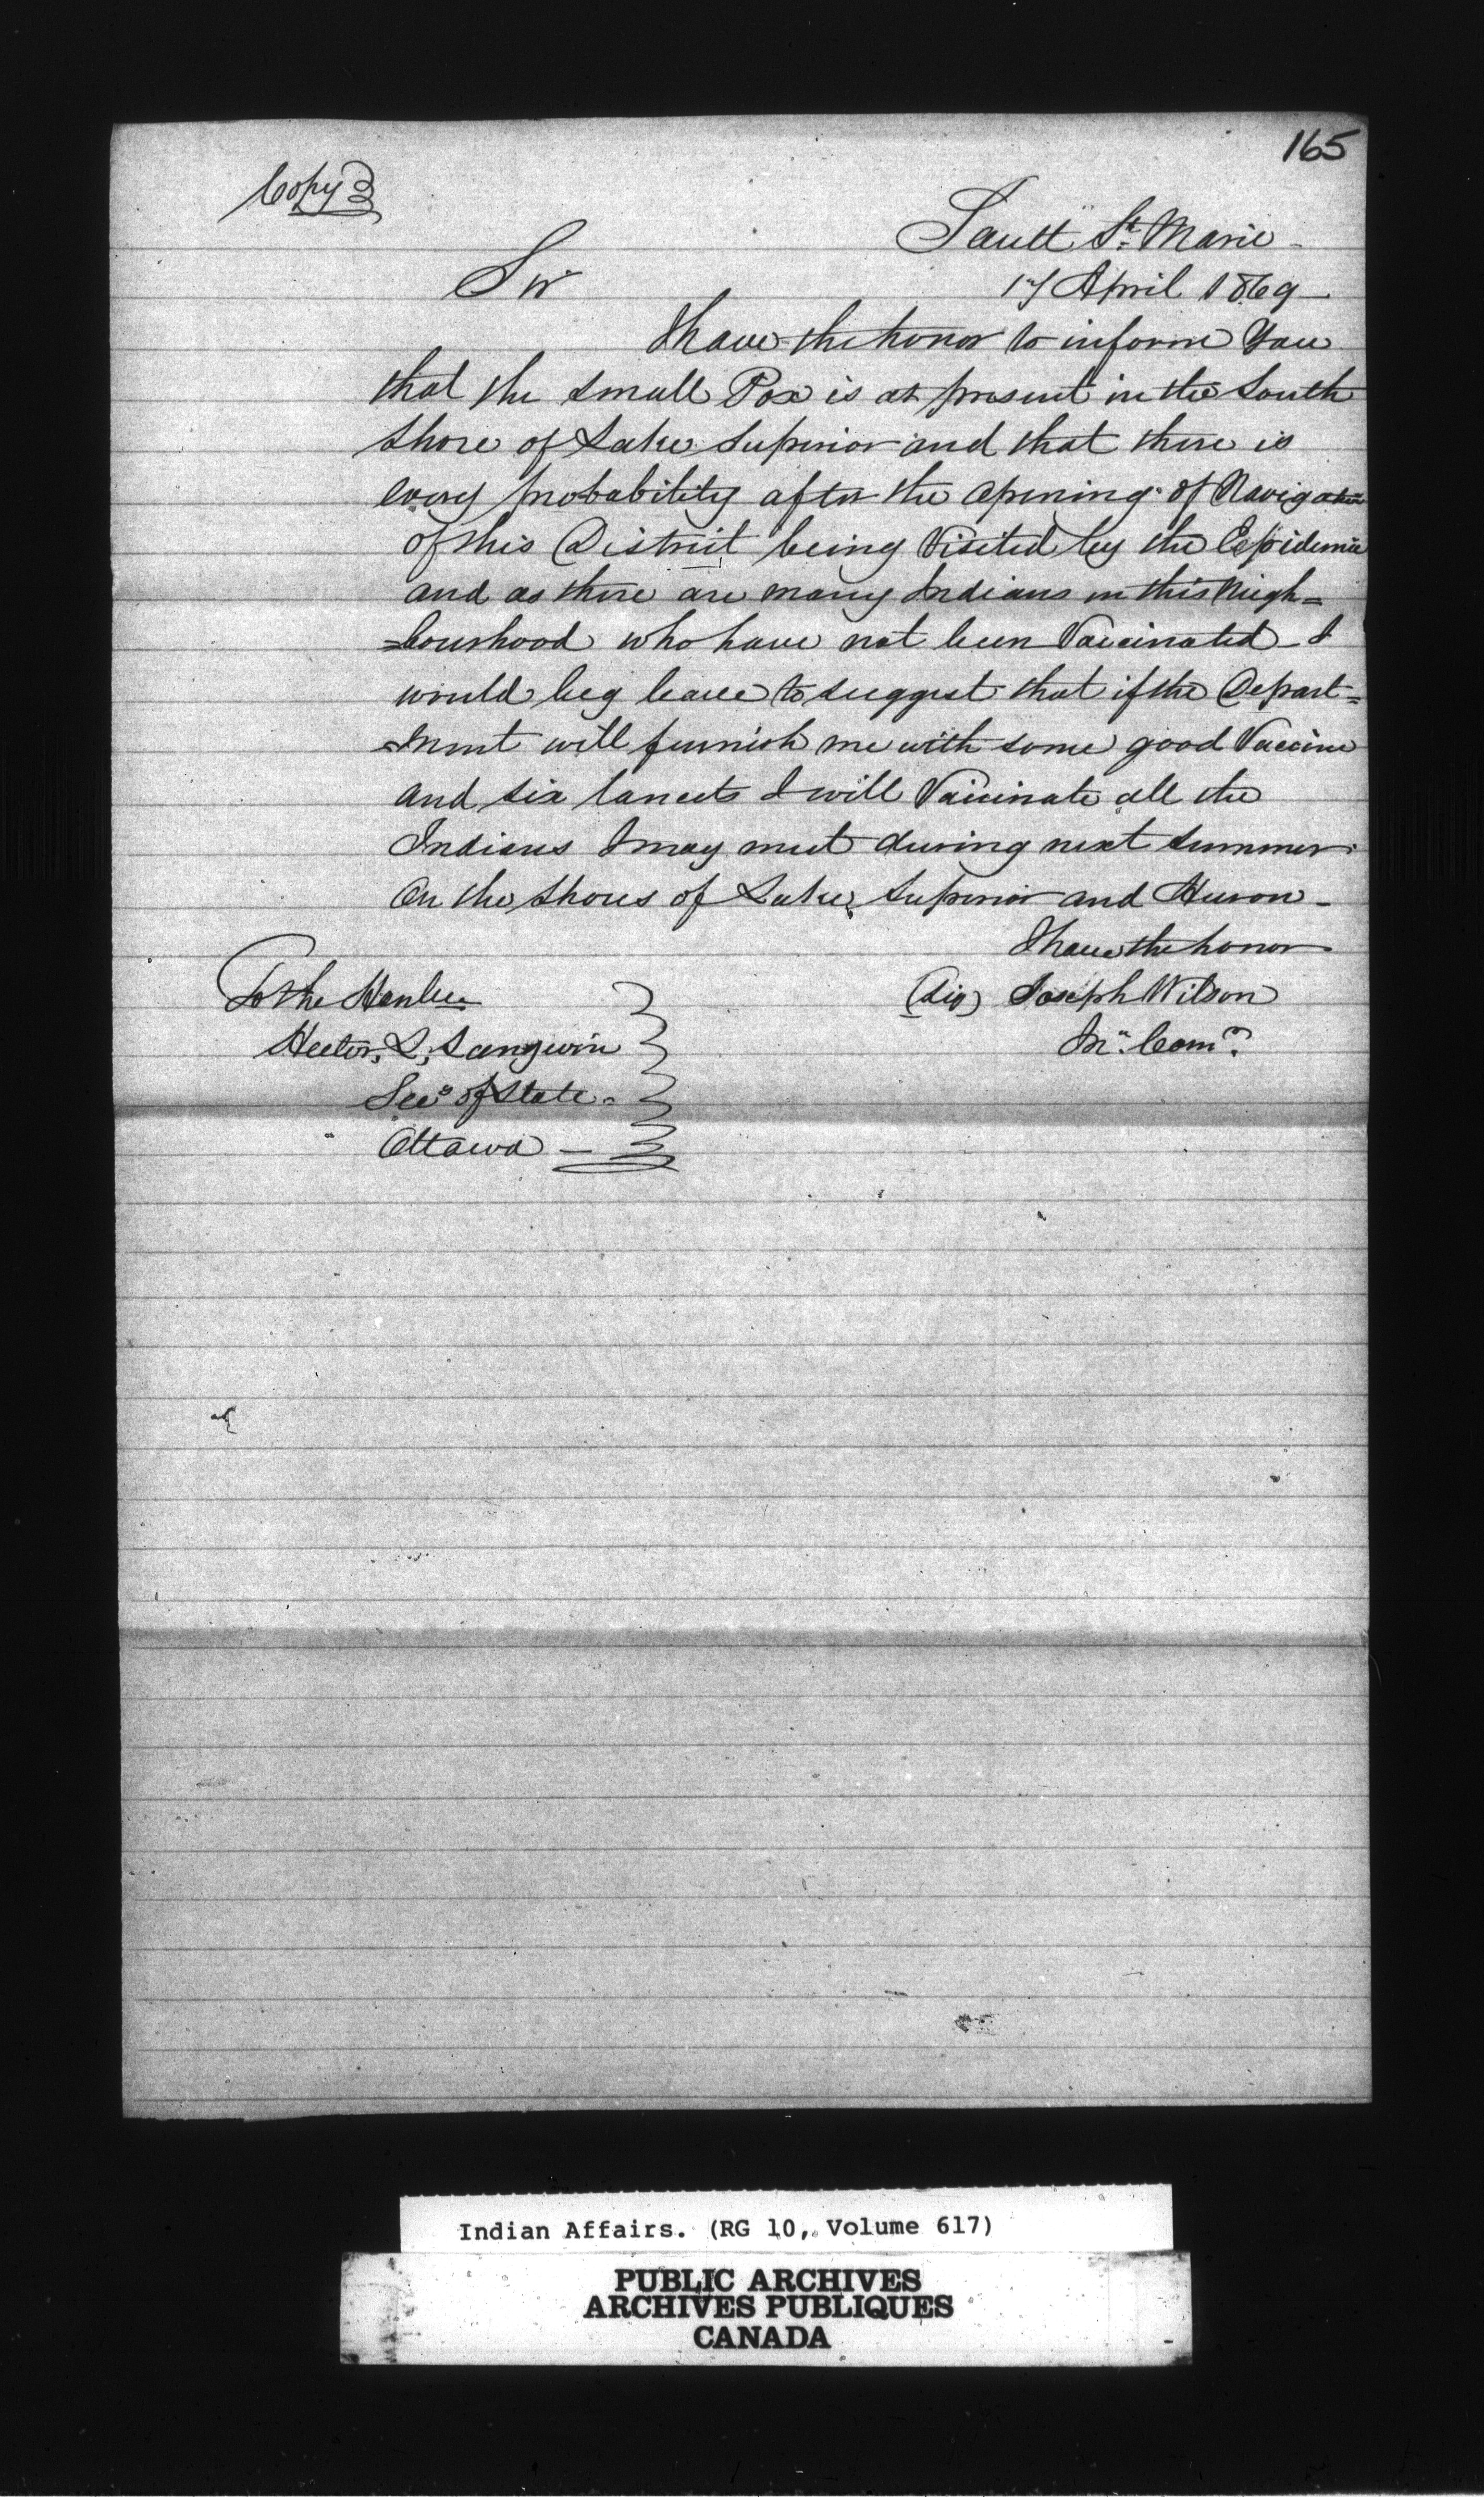 165
Copy
Sault St. Marie
Sir
17 April 1869
I have the honor to inform You
that the Small Pox is at present in the South
Shore of Lake Superior and that there is
every probability after the opening of Navigation
of this District being Visited by the Epidemic
and as there are many Indians in this Neigh=
=bourhood who have not been Vaccinated I
would beg leave to suggest that if the Depart=
=ment will furnish me with some good Vaccine
and six lancets I will Vaccinate all the
Indians I may meet during next Summer
On the Shores of Lake Superior and Huron
I have the honor
(Sig) Joseph Wilson
In. Comr.
To the Honble
Hector. L. Langevin
Secy of State
Ottawa
Indian Affairs. (RG 10, Volume 617)
PUBLIC ARCHIVES
ARCHIVES PUBLIQUES
CANADA